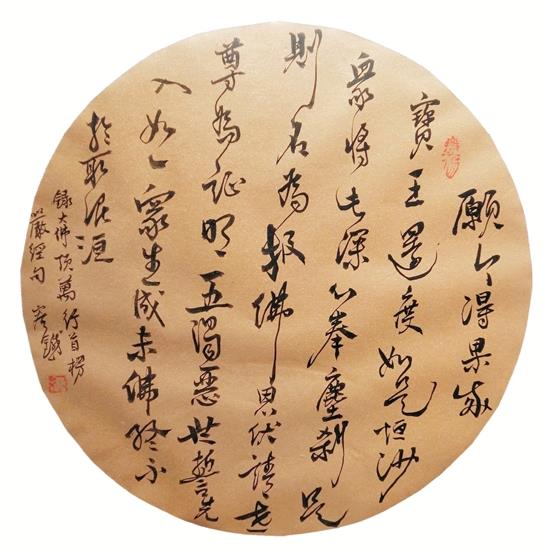 願今得果成
寶王還度如是恒沙
眾將此深心奉塵剎是
則名為報佛恩伏請世
尊為証明五濁惡世誓先
入如一眾生成未佛終不
於取泥洹
錄大佛頂萬行首楞
嚴經句